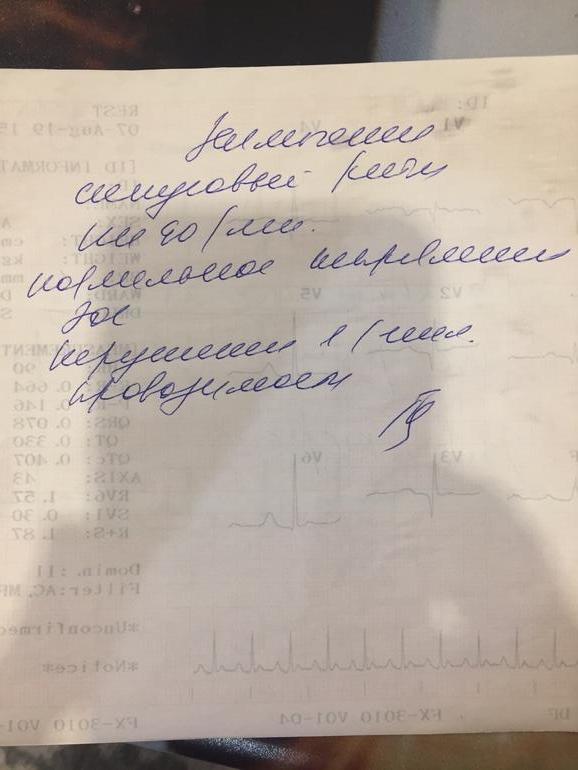 Заключение
синусовый ритм
чсс 90/мин.
нормальное направление
ЭОС
нарушение в/жел.
проводимости
ID:
REST
V1
V4
07-Aug-19 15
[ID INFORMAT
V2
V5
90
0.664
0.146
QRS: 0.078
QT: 0.330
QTc: 0.407
AXIS: 43
V3
V6
RV6: 1.57
SV1: 0.30
R+S: 1.87
Domin.:II
Filter:AC, MF
*Unconfirmed
*Notice*
FX-3010 V01-04
FX-3010 V01-